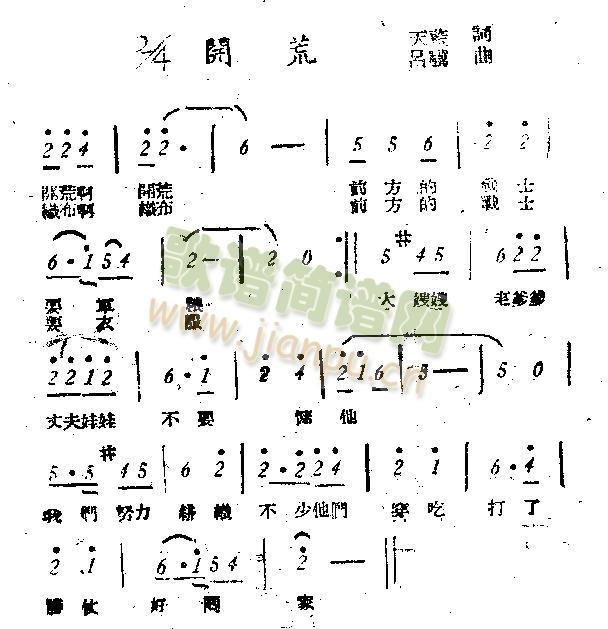 2/4 開荒 天藍 詞
呂驥 曲
2 2 4 | 2 2· | 6 — | 5 5 6 | 2 2 |
開荒啊 開荒 前方的 戰士
織布啊 織布 前方的 戰士
6·1 5 4 | 2 — | 2 0 :|| 5 #4 5 | 6 2 2 |
要軍 糧
要衣 服 大嫂嫂 老爹爹
2 2 1 2 | 6·1 | 2 4 | 2 1 6 | 5 — | 5 0 |
丈夫娃娃 不要 他
5·5 #4 5 | 6 2 | 2·2 2 4 | 2 1 | 6·4 |
我們努力 耕織 不少他們 穿吃 打了
2 1 | 6·1 5 4 | 2 — ||
勝仗 好回 家
歌谱简谱网
www.jianpu.cn